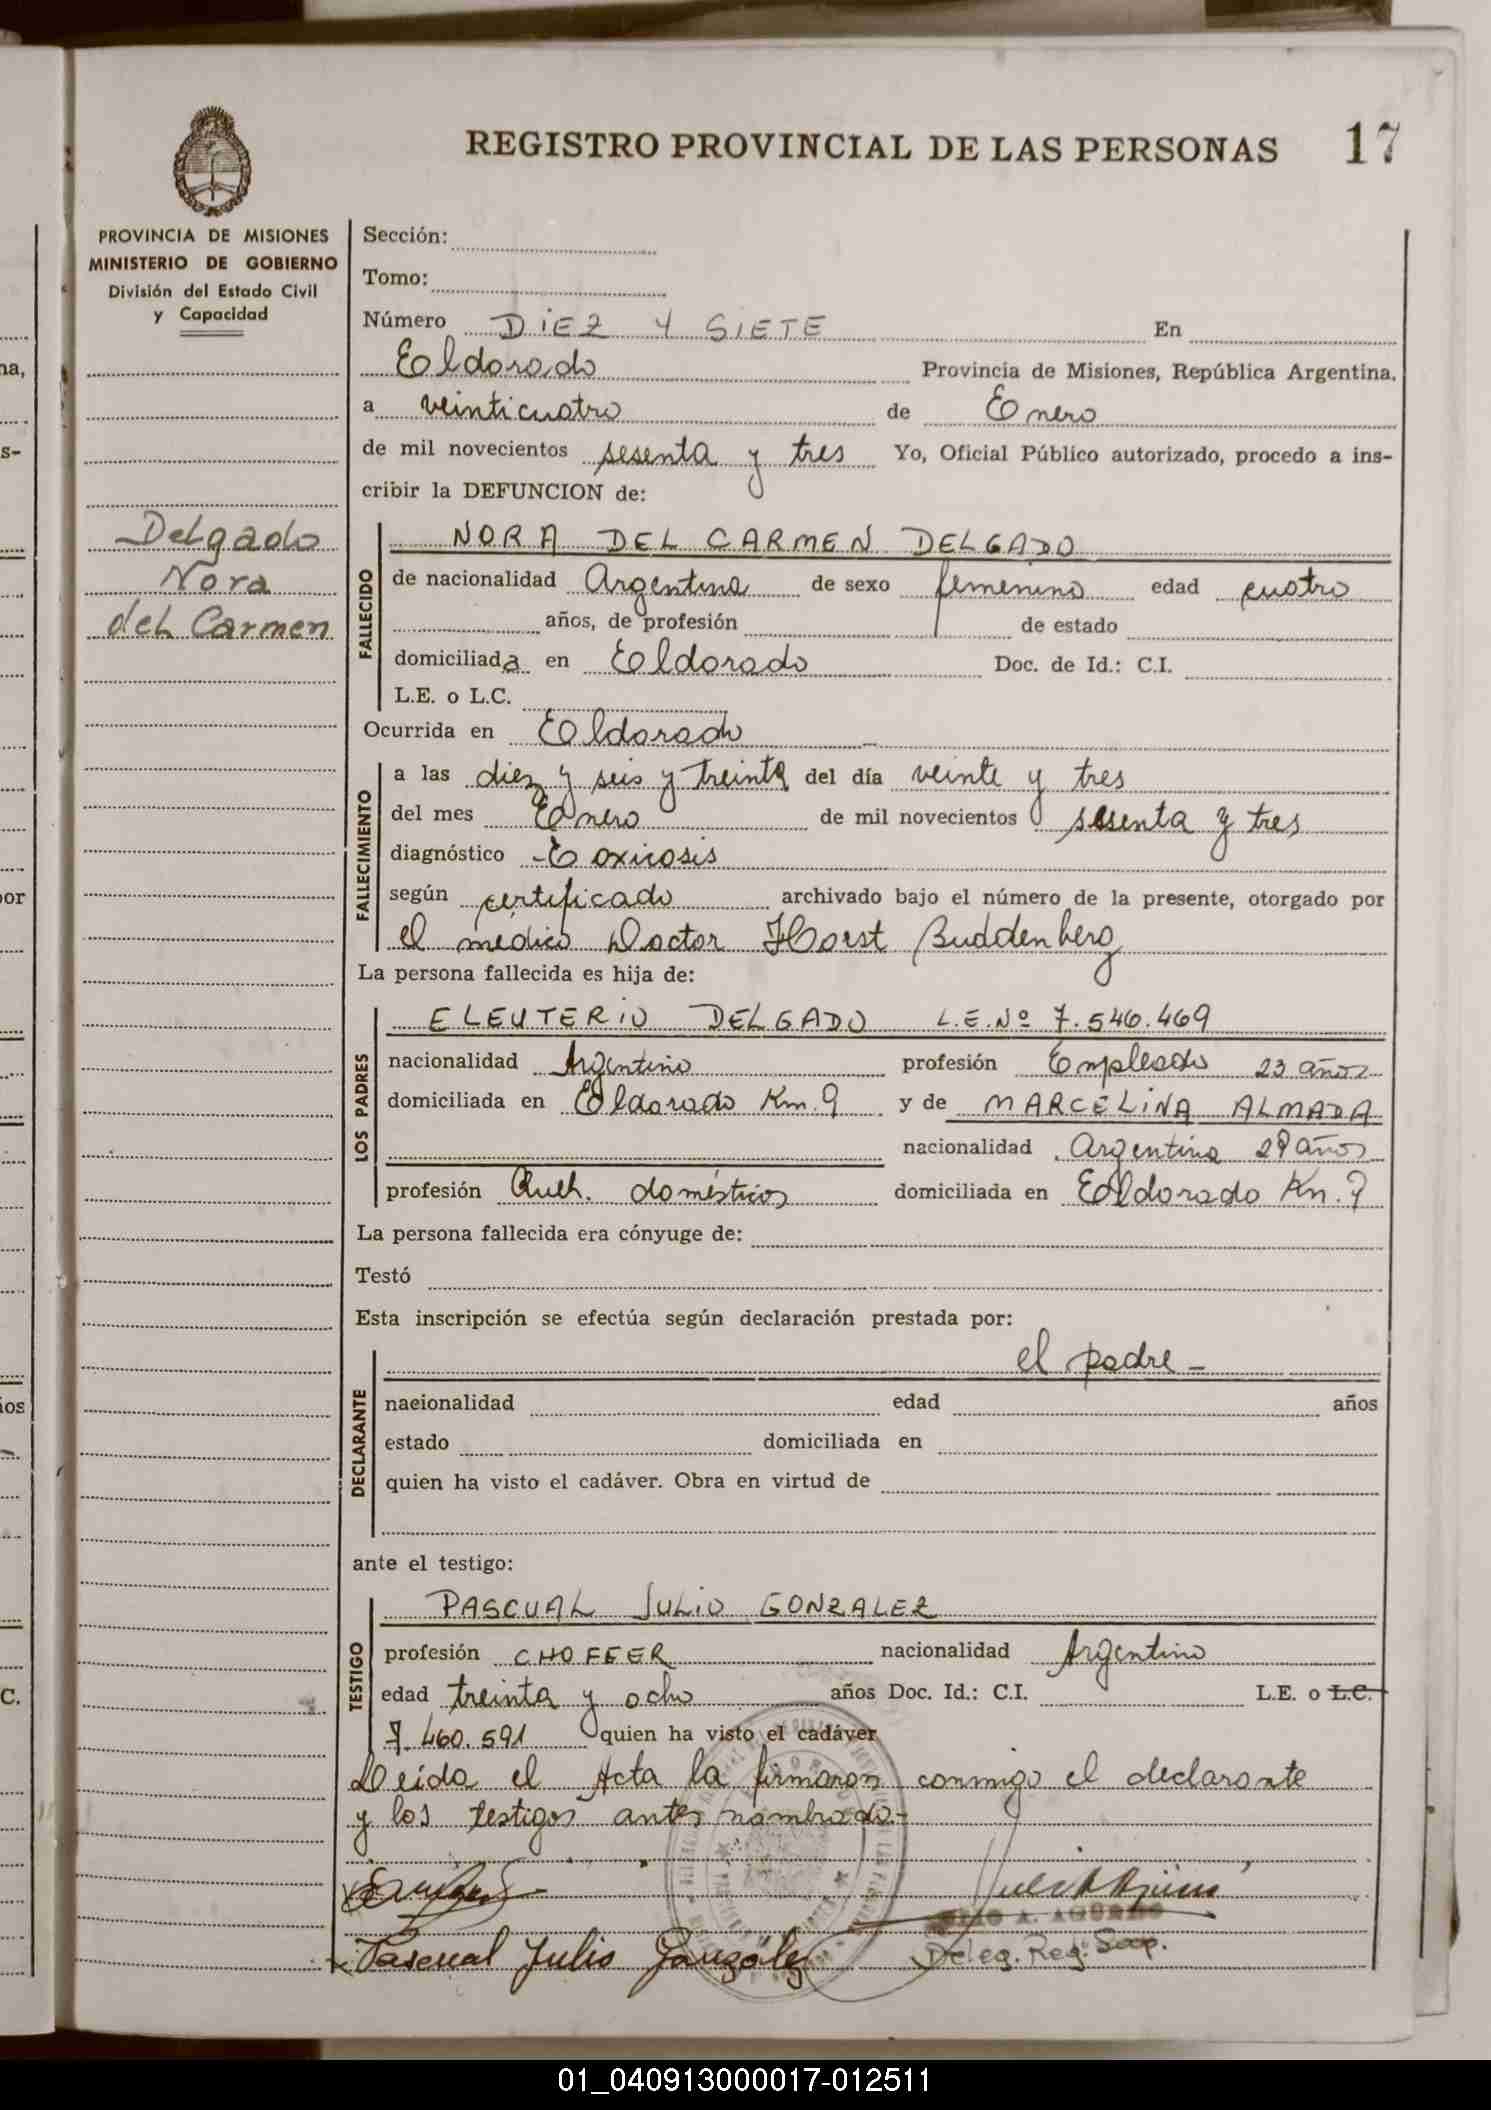 REGISTRO PROVINCIAL DE LAS PERSONAS 17
PROVINCIA DE MISIONES
MINISTERIO DE GOBIERNO
División del Estado Civil
y Capacidad
Delgado
Nora
del Carmen
Sección:
Tomo:
Número DIEZ Y SIETE En
Eldorado Provincia de Misiones, República Argentina,
a veinticuatro de Enero
de mil novecientos sesenta y tres Yo, Oficial Público autorizado, procedo a ins-
cribir la DEFUNCION de:
FALLECIDO
NORA DEL CARMEN DELGADO
de nacionalidad Argentina de sexo femenino edad cuatro
años, de profesión de estado
domiciliada en Eldorado Doc. de Id.: C.I.
L.E. o L.C.
Ocurrida en Eldorado
FALLECIMIENTO
a las diez y seis y treinta del día veinte y tres
del mes Enero de mil novecientos sesenta y tres
diagnóstico
según certificado archivado bajo el número de la presente, otorgado por
el medico Doctor Horst Buddenberg
La persona fallecida es hija de:
LOS PADRES
ELEUTERIO DELGADO L.E.Nº 7.546.469
nacionalidad Argentino profesión Empleado 23 años
domiciliada en Eldorado Km. 9 y de MARCELINA ALMADA
nacionalidad Argentina años
profesión Queh. domésticos domiciliada en Eldorado Km. 9
La persona fallecida era cónyuge de:
Testó
Esta inscripción se efectúa según declaración prestada por:
DECLARANTE
el padre -
nacionalidad edad años
estado domiciliada en
quien ha visto el cadáver. Obra en virtud de
ante el testigo:
TESTIGO
PASCUAL JULIO GONZALEZ
profesión CHOFFER nacionalidad Argentino
edad treinta y ocho años Doc. Id.: C.I. L.E. o L.C.
7.460.591 quien ha visto el cadáver
Leida el Acta la firmaron conmigo el declarante
y los testigos antes nombrado.-
Pascual Julio González
Deleg. Reg. Seep.
01_040913000017-012511